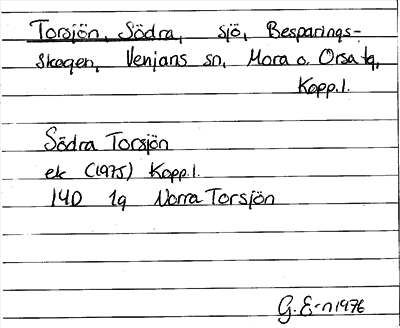 Torsjön, Södra, sjö, Besparings-
skogen, Venjans sn, Mora o. Orsa tg,
Kopp.l.
Södra Torsjön
ek (1975) Kopp.l.
14D 1g Norra Torsjön
G. E-n 1976